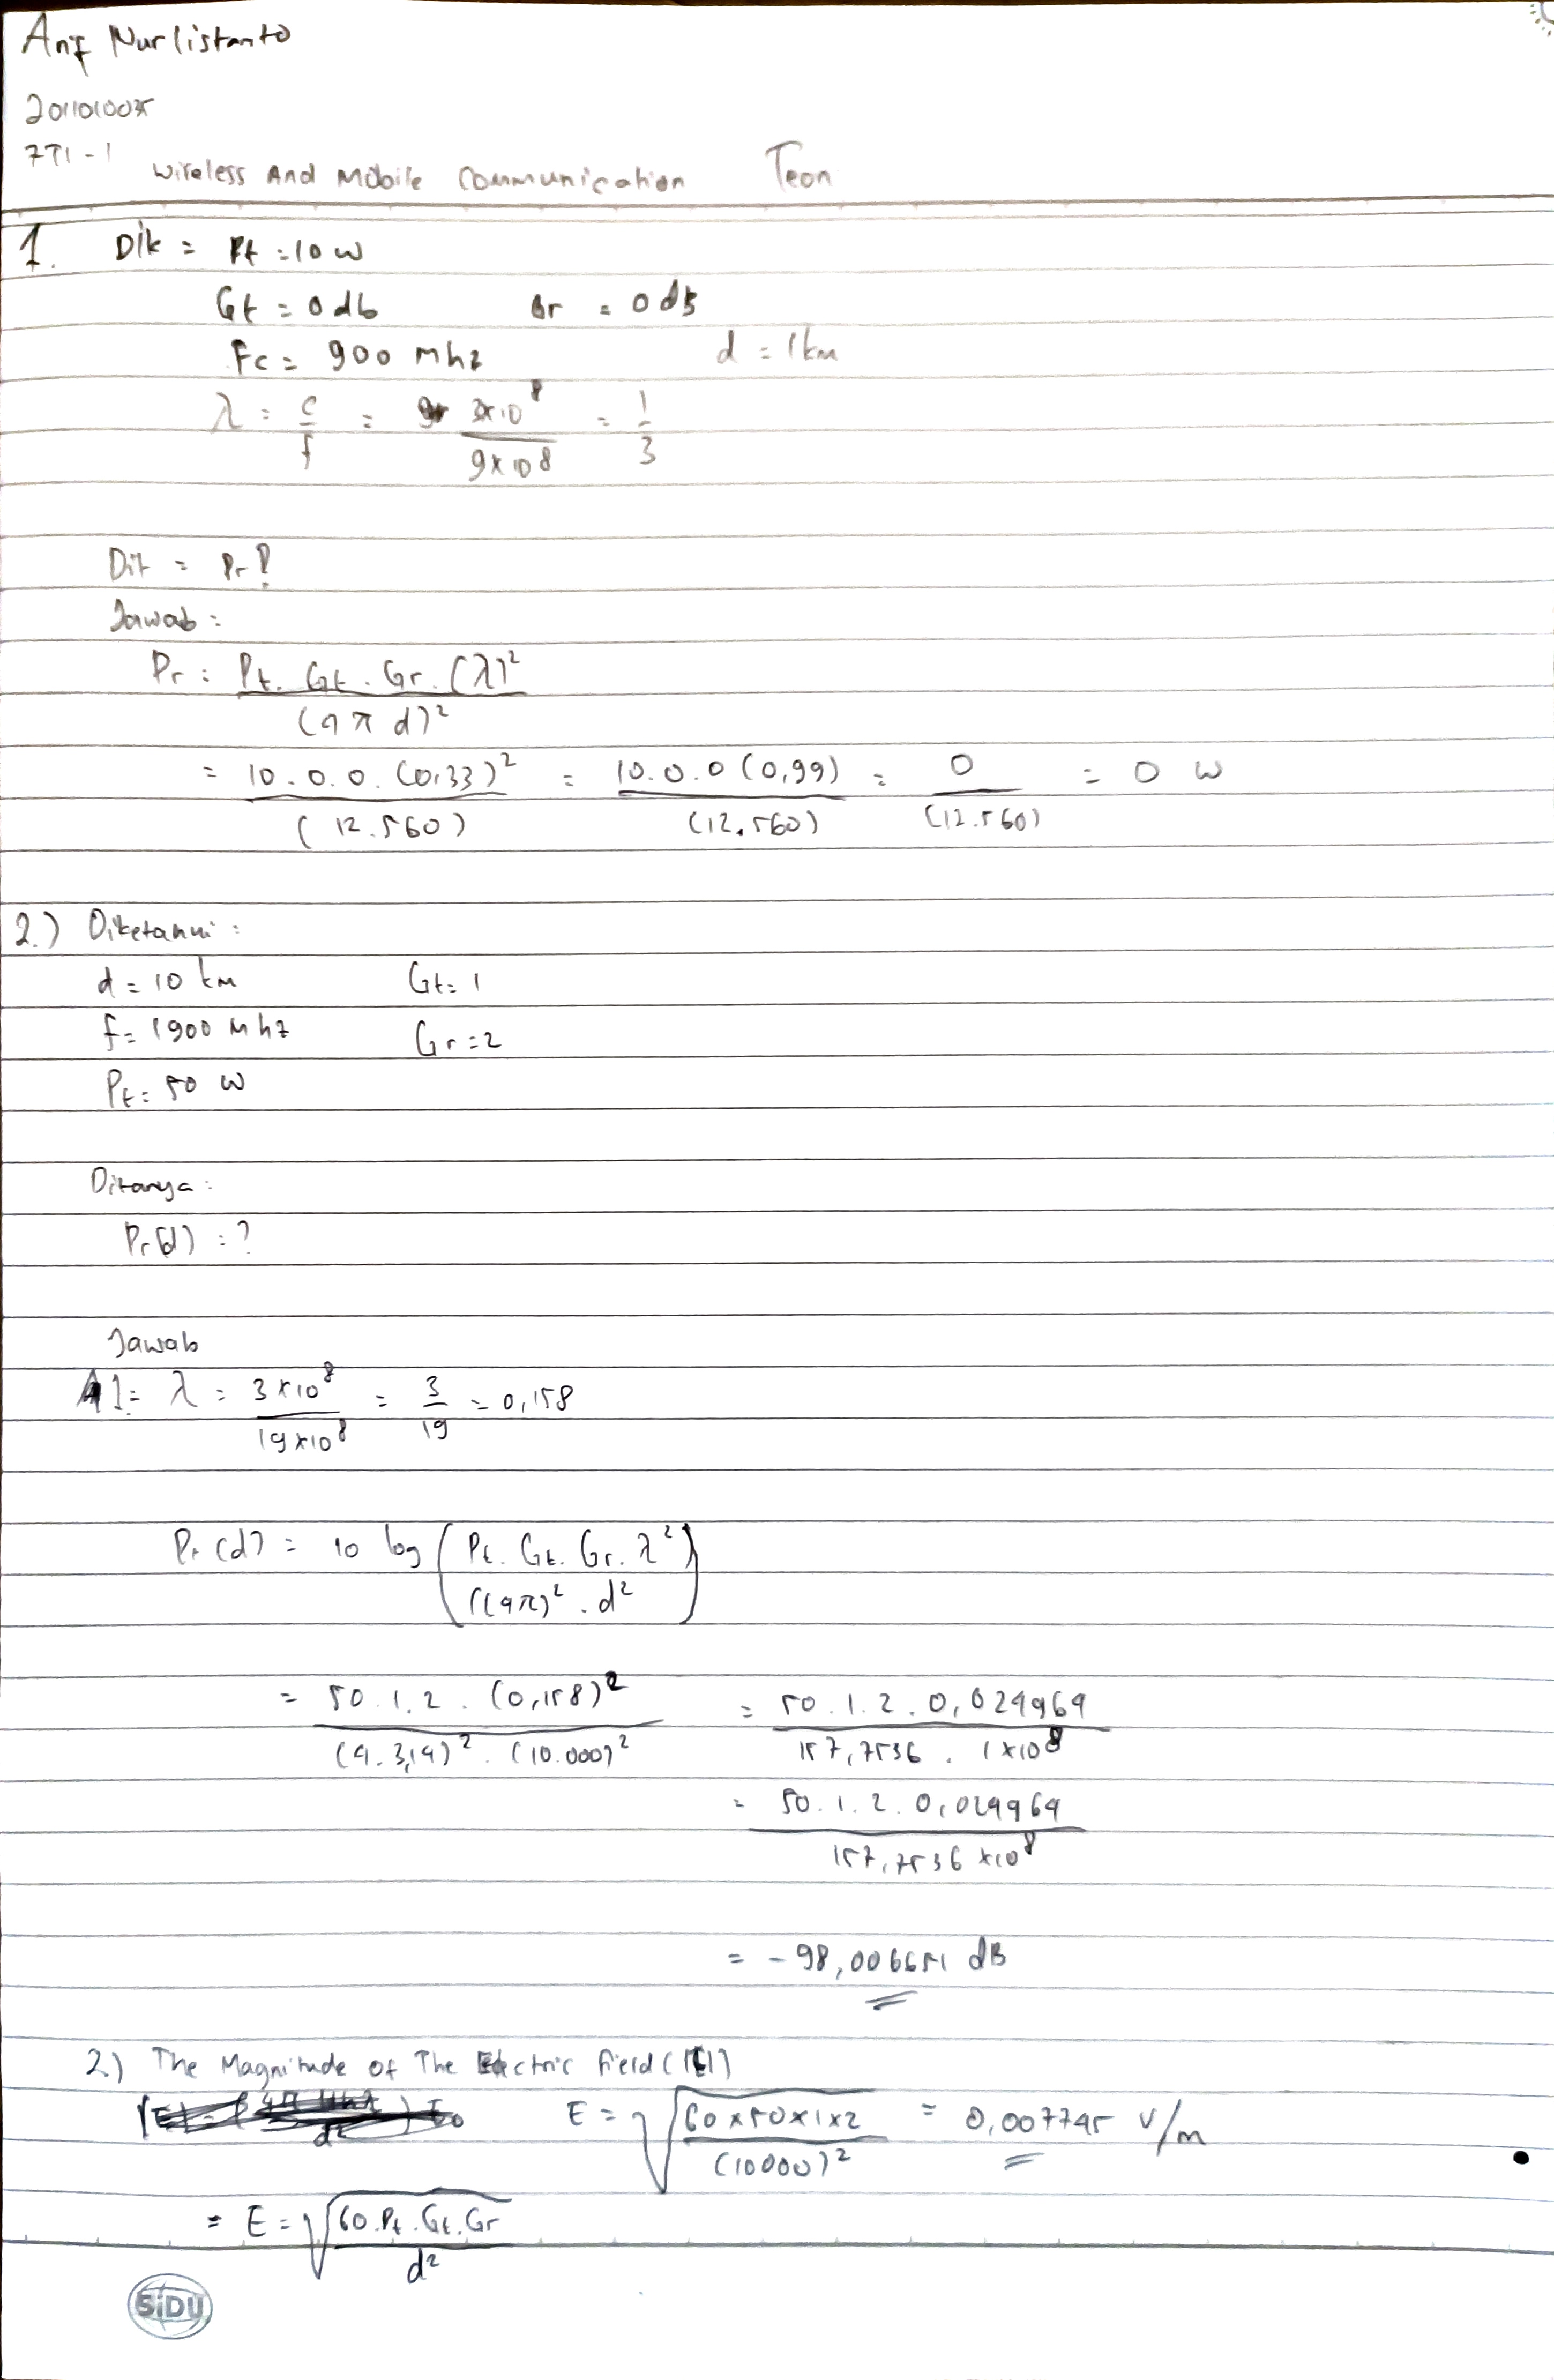 Arif Nurlistanto
2011010035
7TI-1
Wireless And Mobile Communication Teori
1. Dik = Pt = 10 W
Gt = 0 db Gr = 0 db
Fc = 900 Mhz d = 1 km
λ = c/f = 3x10^8 / 9x10^8 = 1/3
Dit = Pr?
Jawab :
Pr = Pt. Gt. Gr. (λ)² / (4π d)²
= 10.0.0.(0,33)² / (12.560) = 10.0.0(0,99) / (12.560) = 0 / (12.560) = 0 W
2.) Diketahui :
d = 10 km Gt = 1
f = 1900 Mhz Gr = 2
Pt = 50 W
Ditanya :
Pr(d) = ?
Jawab
1 = λ = 3x10^8 / 19x10^8 = 3/19 = 0,158
Pr (d) = 10 log (Pt. Gt. Gr. λ² / ((4π)² . d²)
= 50.1.2.(0,158)² / (4.3,14)² . (10.000)² = 50.1.2.0,024964 / 157,7536 . 1x10^8
= 50.1.2.0,024964 / 157,7536 x10^8
= -98,006651 dB
2.) The Magnitude of The Electric field (|E|)
E = √(60x50x1x2 / (10000)²) = 0,007745 V/m
= E = √(60.Pt.Gt.Gr / d²)
SiDU